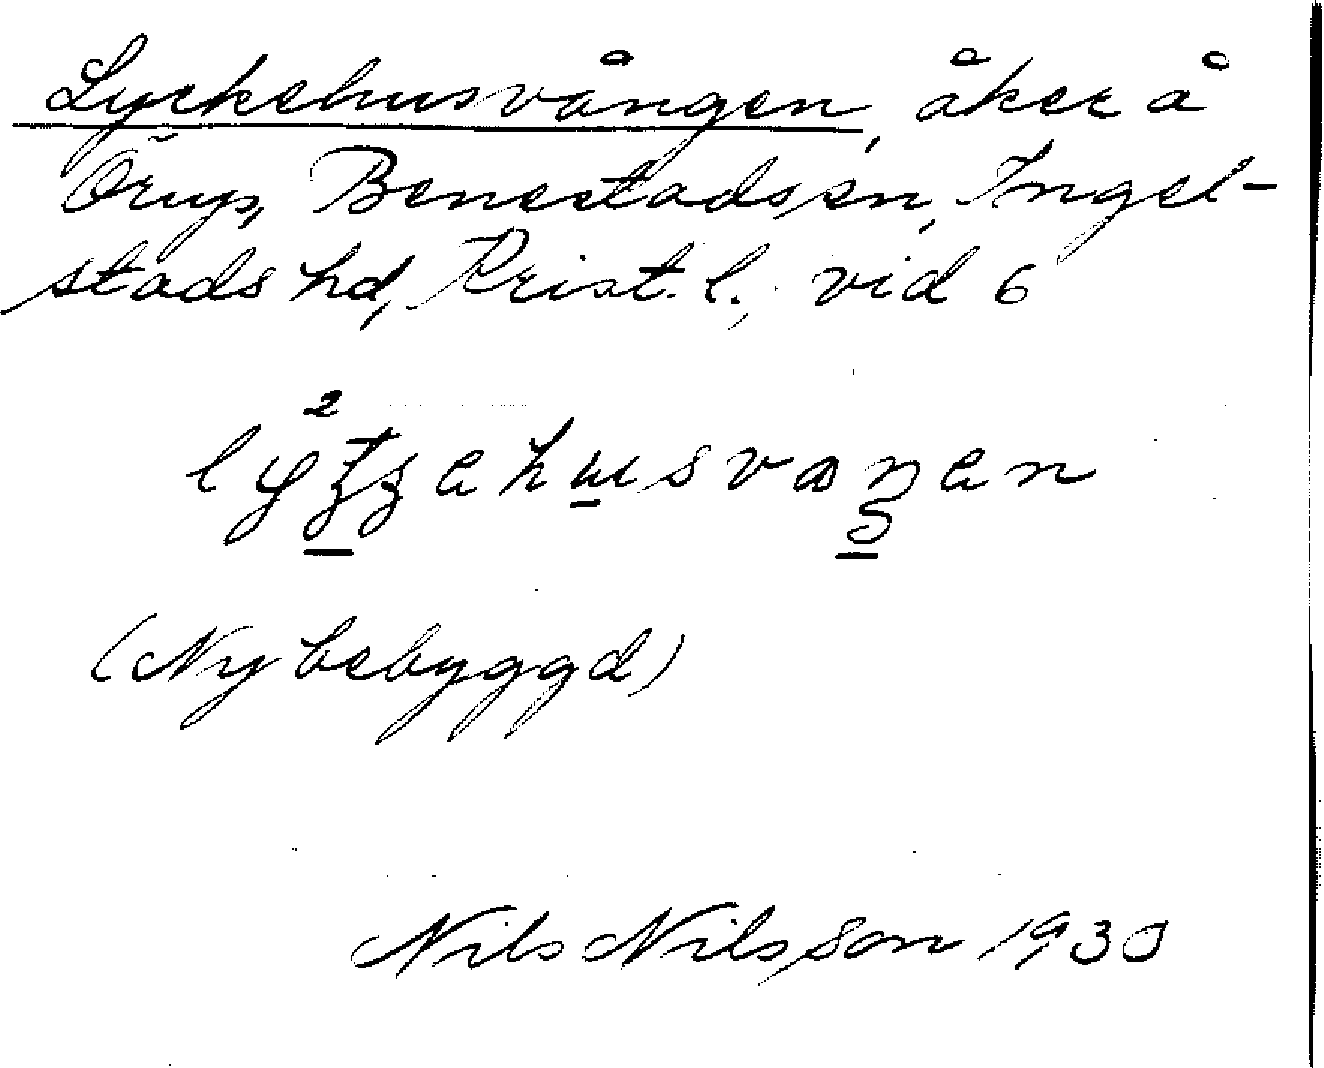 Lyckehusvången, åker å
Örup, Benestads sn, Ingel-
stads hd, Krist. l., vid 6
(Ny bebyggd)
Nils Nilsson 1930